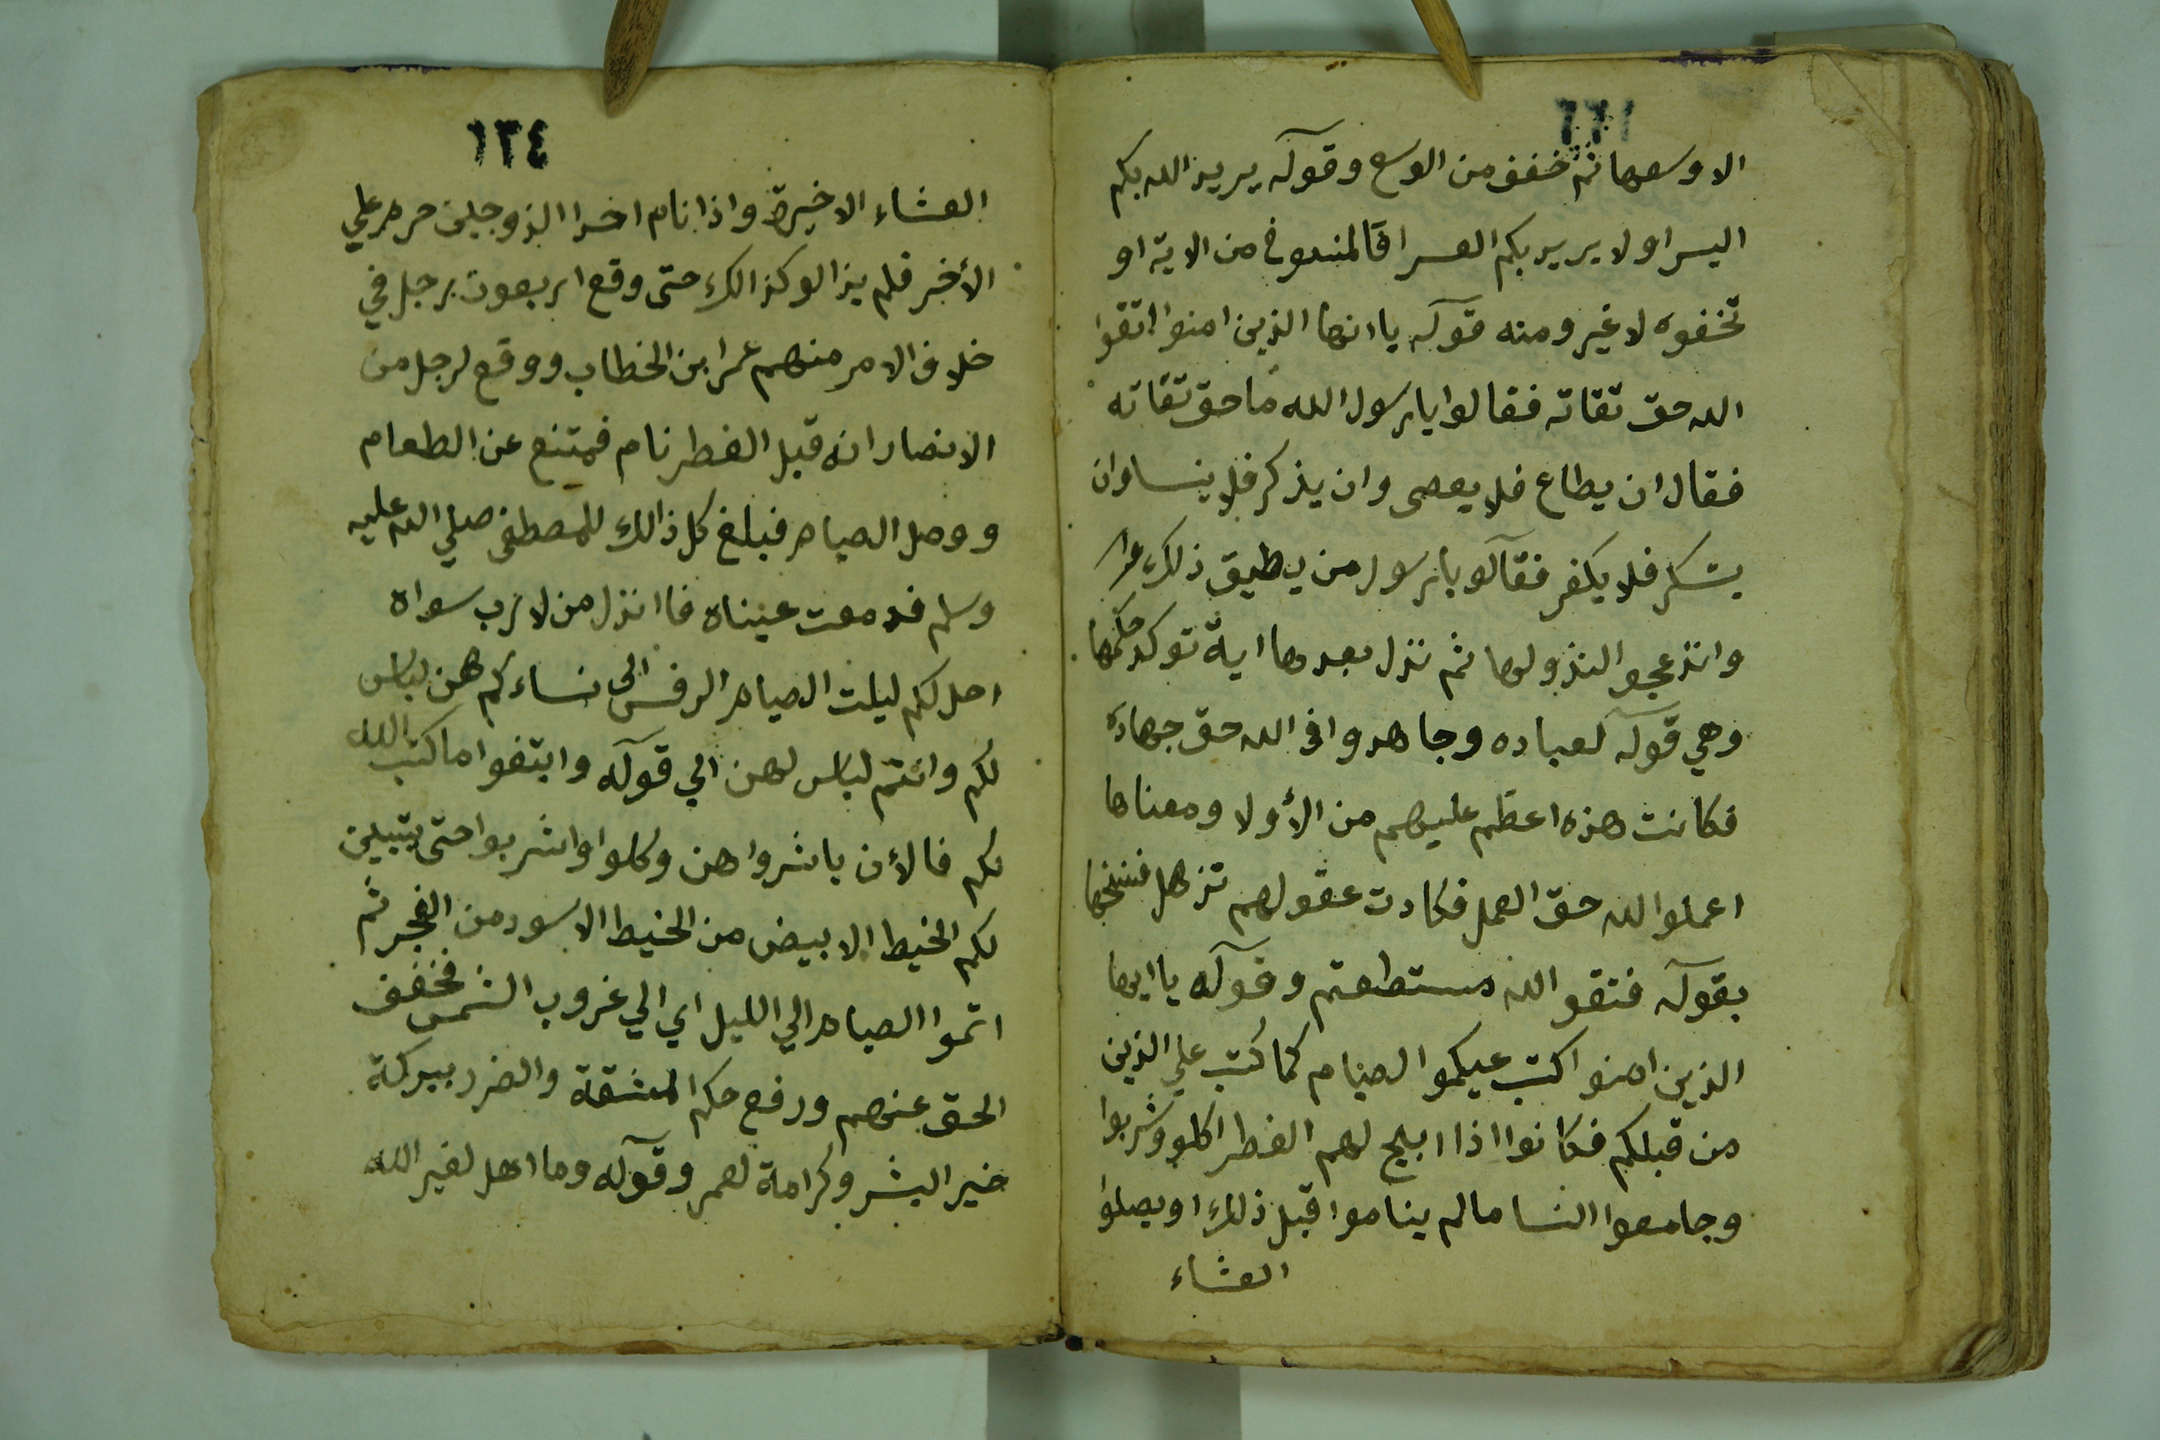 ١٢٣
الا وسعها ثم خفف من الوسع وقوله يريد الله بكم
اليسر او لا يريد بكم العسر ا فالمنسوخ من الاية او
تخفوه لا غير ومنه قوله يا ايها الذين امنوا اتقوا
الله حق تقاته فقالوا يا رسول الله ما حق تقاته
فقال ان يطاع فلا يعصى وان يذكر فلا ينسا وان
يشكر فلا يكفر فقالو يا رسول من يطيق ذلك
وانزعجوا لنزولها ثم نزل بعدها اية توكد حكمها
وهي قوله لعباده وجاهدوا في الله حق جهاده
فكانت هذه اعظم عليهم من الأولا ومعناها
اعملوا لله حق العمل فكادت عقولهم تزهل فنسخها
بقوله فتقو الله مستطعتم وقوله يا ايها
الذين امنوا كتب عيكموا الصيام كما كتب علي الذين
من قبلكم فكانوا اذا ابيح لهم الفطر اكلو وشربوا
وجامعوا النسا مالم يناموا قبل ذلك او يصلوا
العشاء
١٢٤
العشاء الاخيرة واذا نام احدا الزوجين حرم علي
الأخر فلم يزالو كذالك حتى وقع اربعون رجل في
خلاف الامر منهم عمر ابن الخطاب ووقع لرجل من
الانصار انه قبل الفطر نام فمتنع عن الطعام
ووصل الصيام فبلغ كل ذالك للمصطفى صلي الله عليه
وسلم فدمعت عيناه فاانزل من لا رب سواه
احل لكم ليلت الصيام الرفس الى نساءكم هن لباس
لكم وانتم لباس لهن الي قوله وابتغوا ما كتب الله
لكم فالأن باشروا هن وكلوا واشربوا حتى يتبين
لكم الخيط الابيض من الخيط الاسود من الفجر ثم
اتموا الصيام الي الليل اي الي غروب الشمس فخفف
الحق عنهم ورفع حكم المشقة والضرر ببركة
خير البشر وكرامة لعمر وقوله وما اهل لغير الله